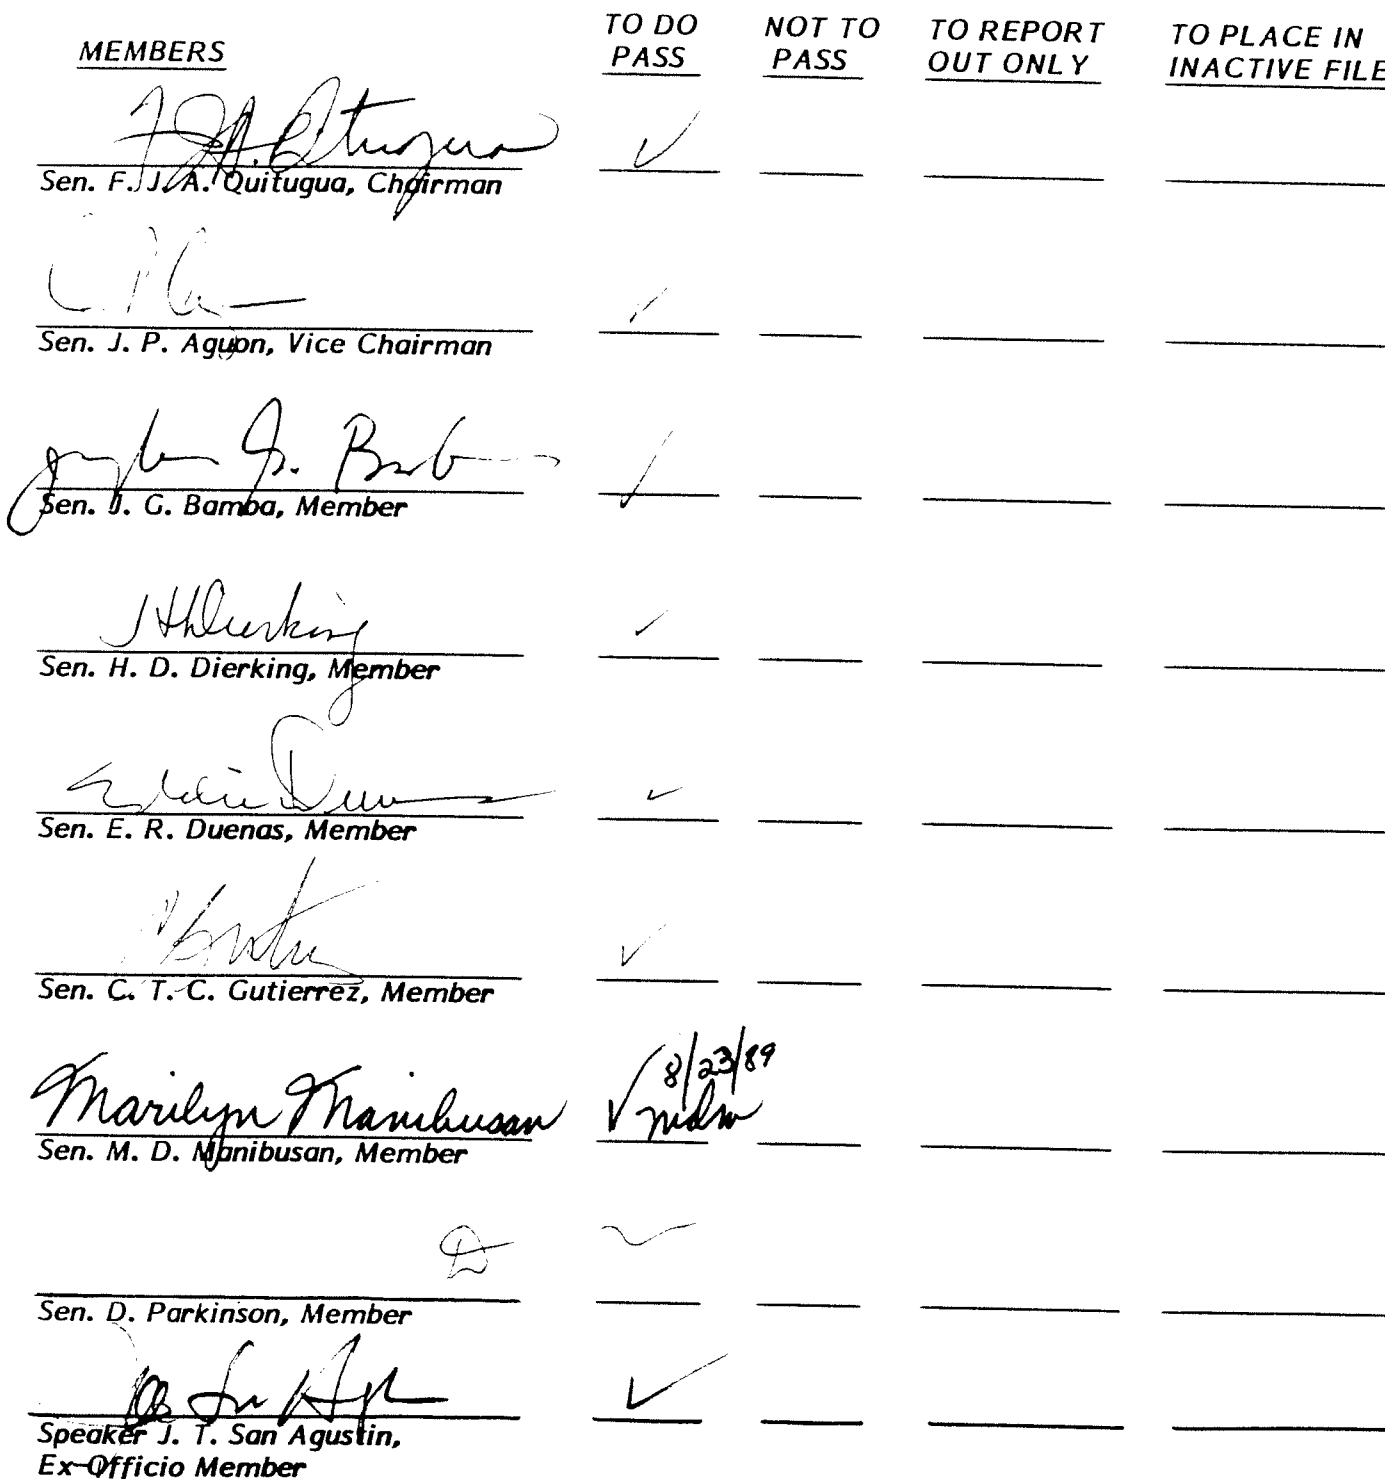 MEMBERS
TO DO PASS
NOT TO PASS
TO REPORT OUT ONLY
TO PLACE IN INACTIVE FILE
✓
Sen. F. J. A. Quitugua, Chairman
✓
Sen. J. P. Aguon, Vice Chairman
✓
Sen. J. G. Bamba, Member
✓
Sen. H. D. Dierking, Member
Eddie Duenas ✓
Sen. E. R. Duenas, Member
✓
Sen. C. T. C. Gutierrez, Member
Marilyn Manibusan ✓ 8/23/89 mdm
Sen. M. D. Manibusan, Member
Sen. D. Parkinson, Member
✓
Speaker J. T. San Agustin,
Ex-Officio Member